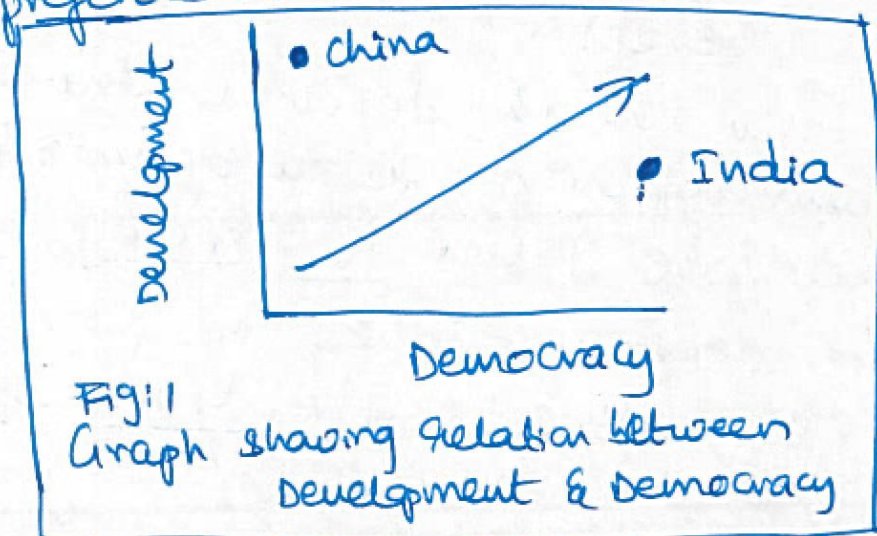 Development
China
India
Democracy
Fig:1
Graph showing Relation between
Development & Democracy